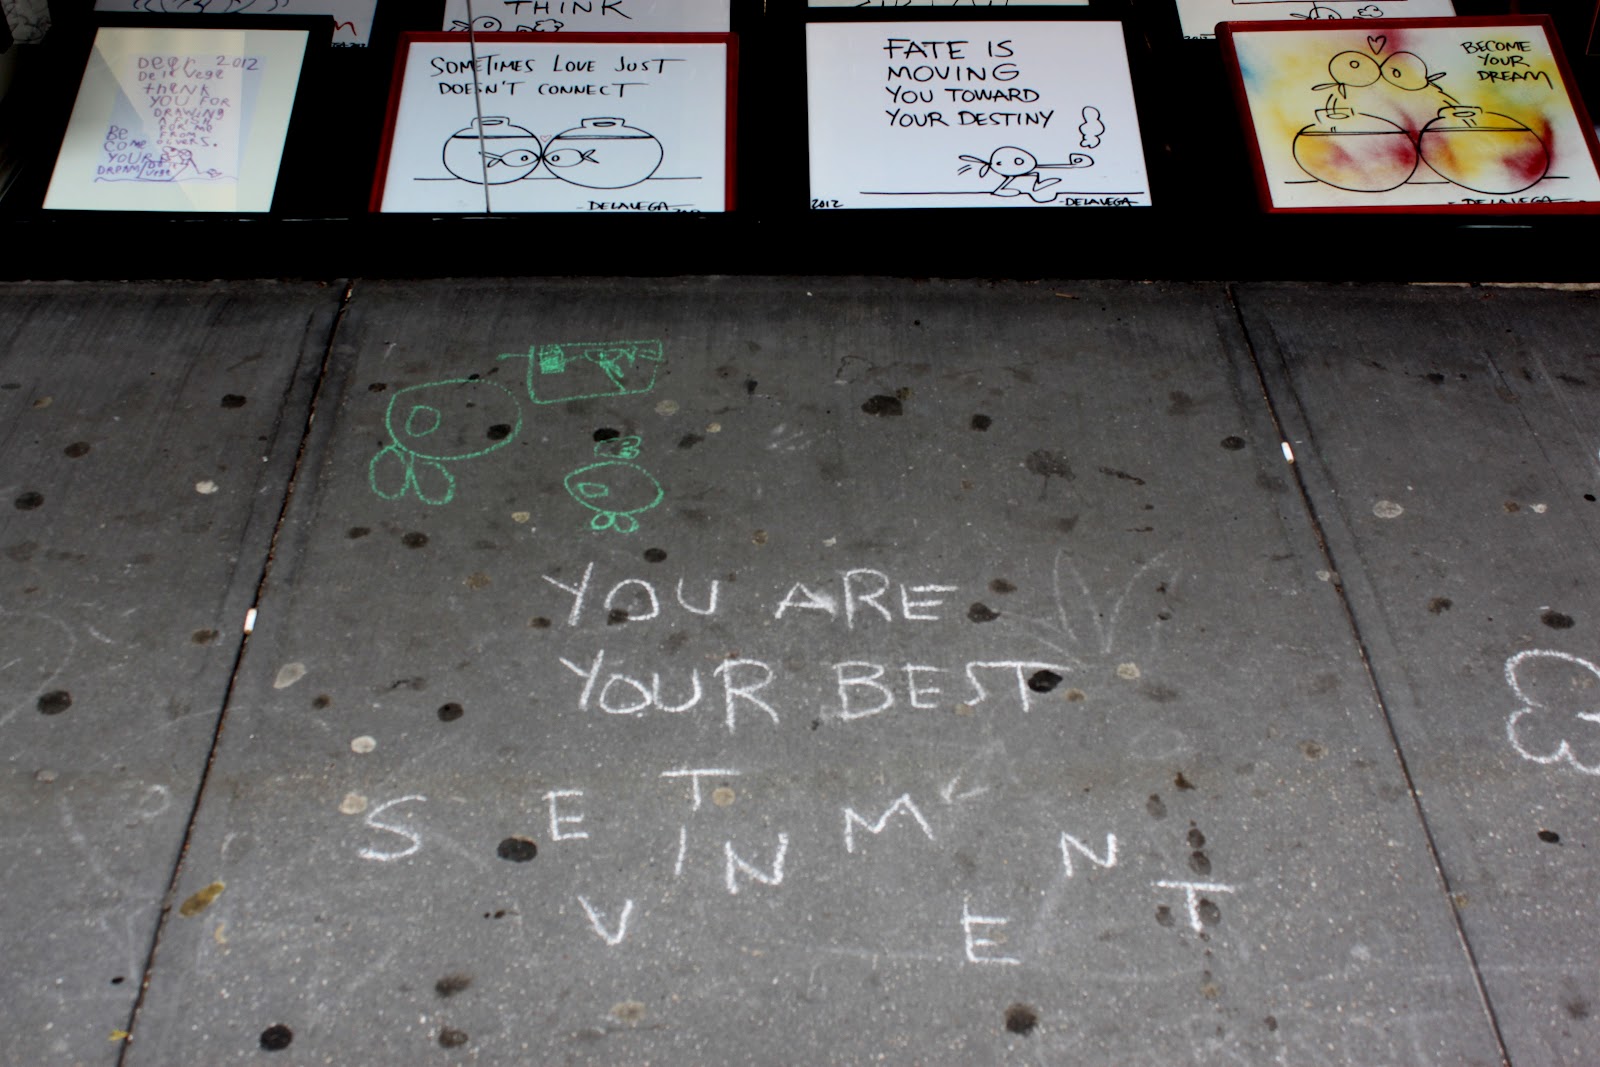 THINK
Dear 2012
De la Vega
thank
YOU FOR
DRAWING
A FISH
FOR ME
FROM
OLIVERS.
BE
COME
YOUR
DREAM
SOMETIMES LOVE JUST
DOESN'T CONNECT
- DELAVEGA
FATE IS
MOVING
YOU TOWARD
YOUR DESTINY
2012 -DELAVEGA
BECOME
YOUR
DREAM
- DELAVEGA
YOU ARE
YOUR BEST
S E V T I N M E N T